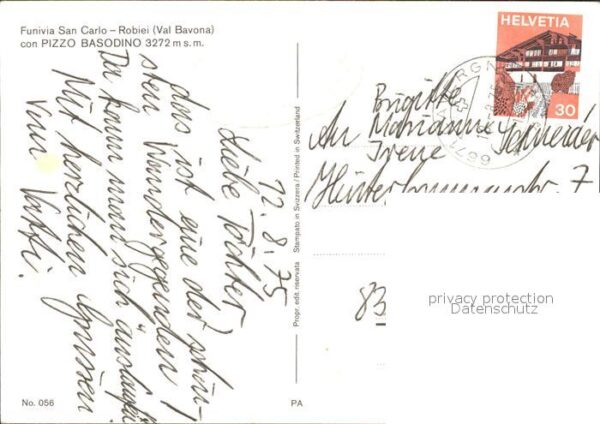 Funivia San Carlo – Robiei (Val Bavona)
con PIZZO BASODINO 3272 m s. m.
12. 8. 75
Liebe Töchter
das ist eine der schön-
sten Wandergegenden!
Da kann man sich auslaufen
Mit herzlichen Grüssen
Vatti.
No. 056
PA
Propr. edit. riservata Stampato in Svizzera / Printed in Switzerland
HELVETIA
30
6671
Brigitte
An Marianne Schneider
Irene
7
83
privacy protection
Datenschutz